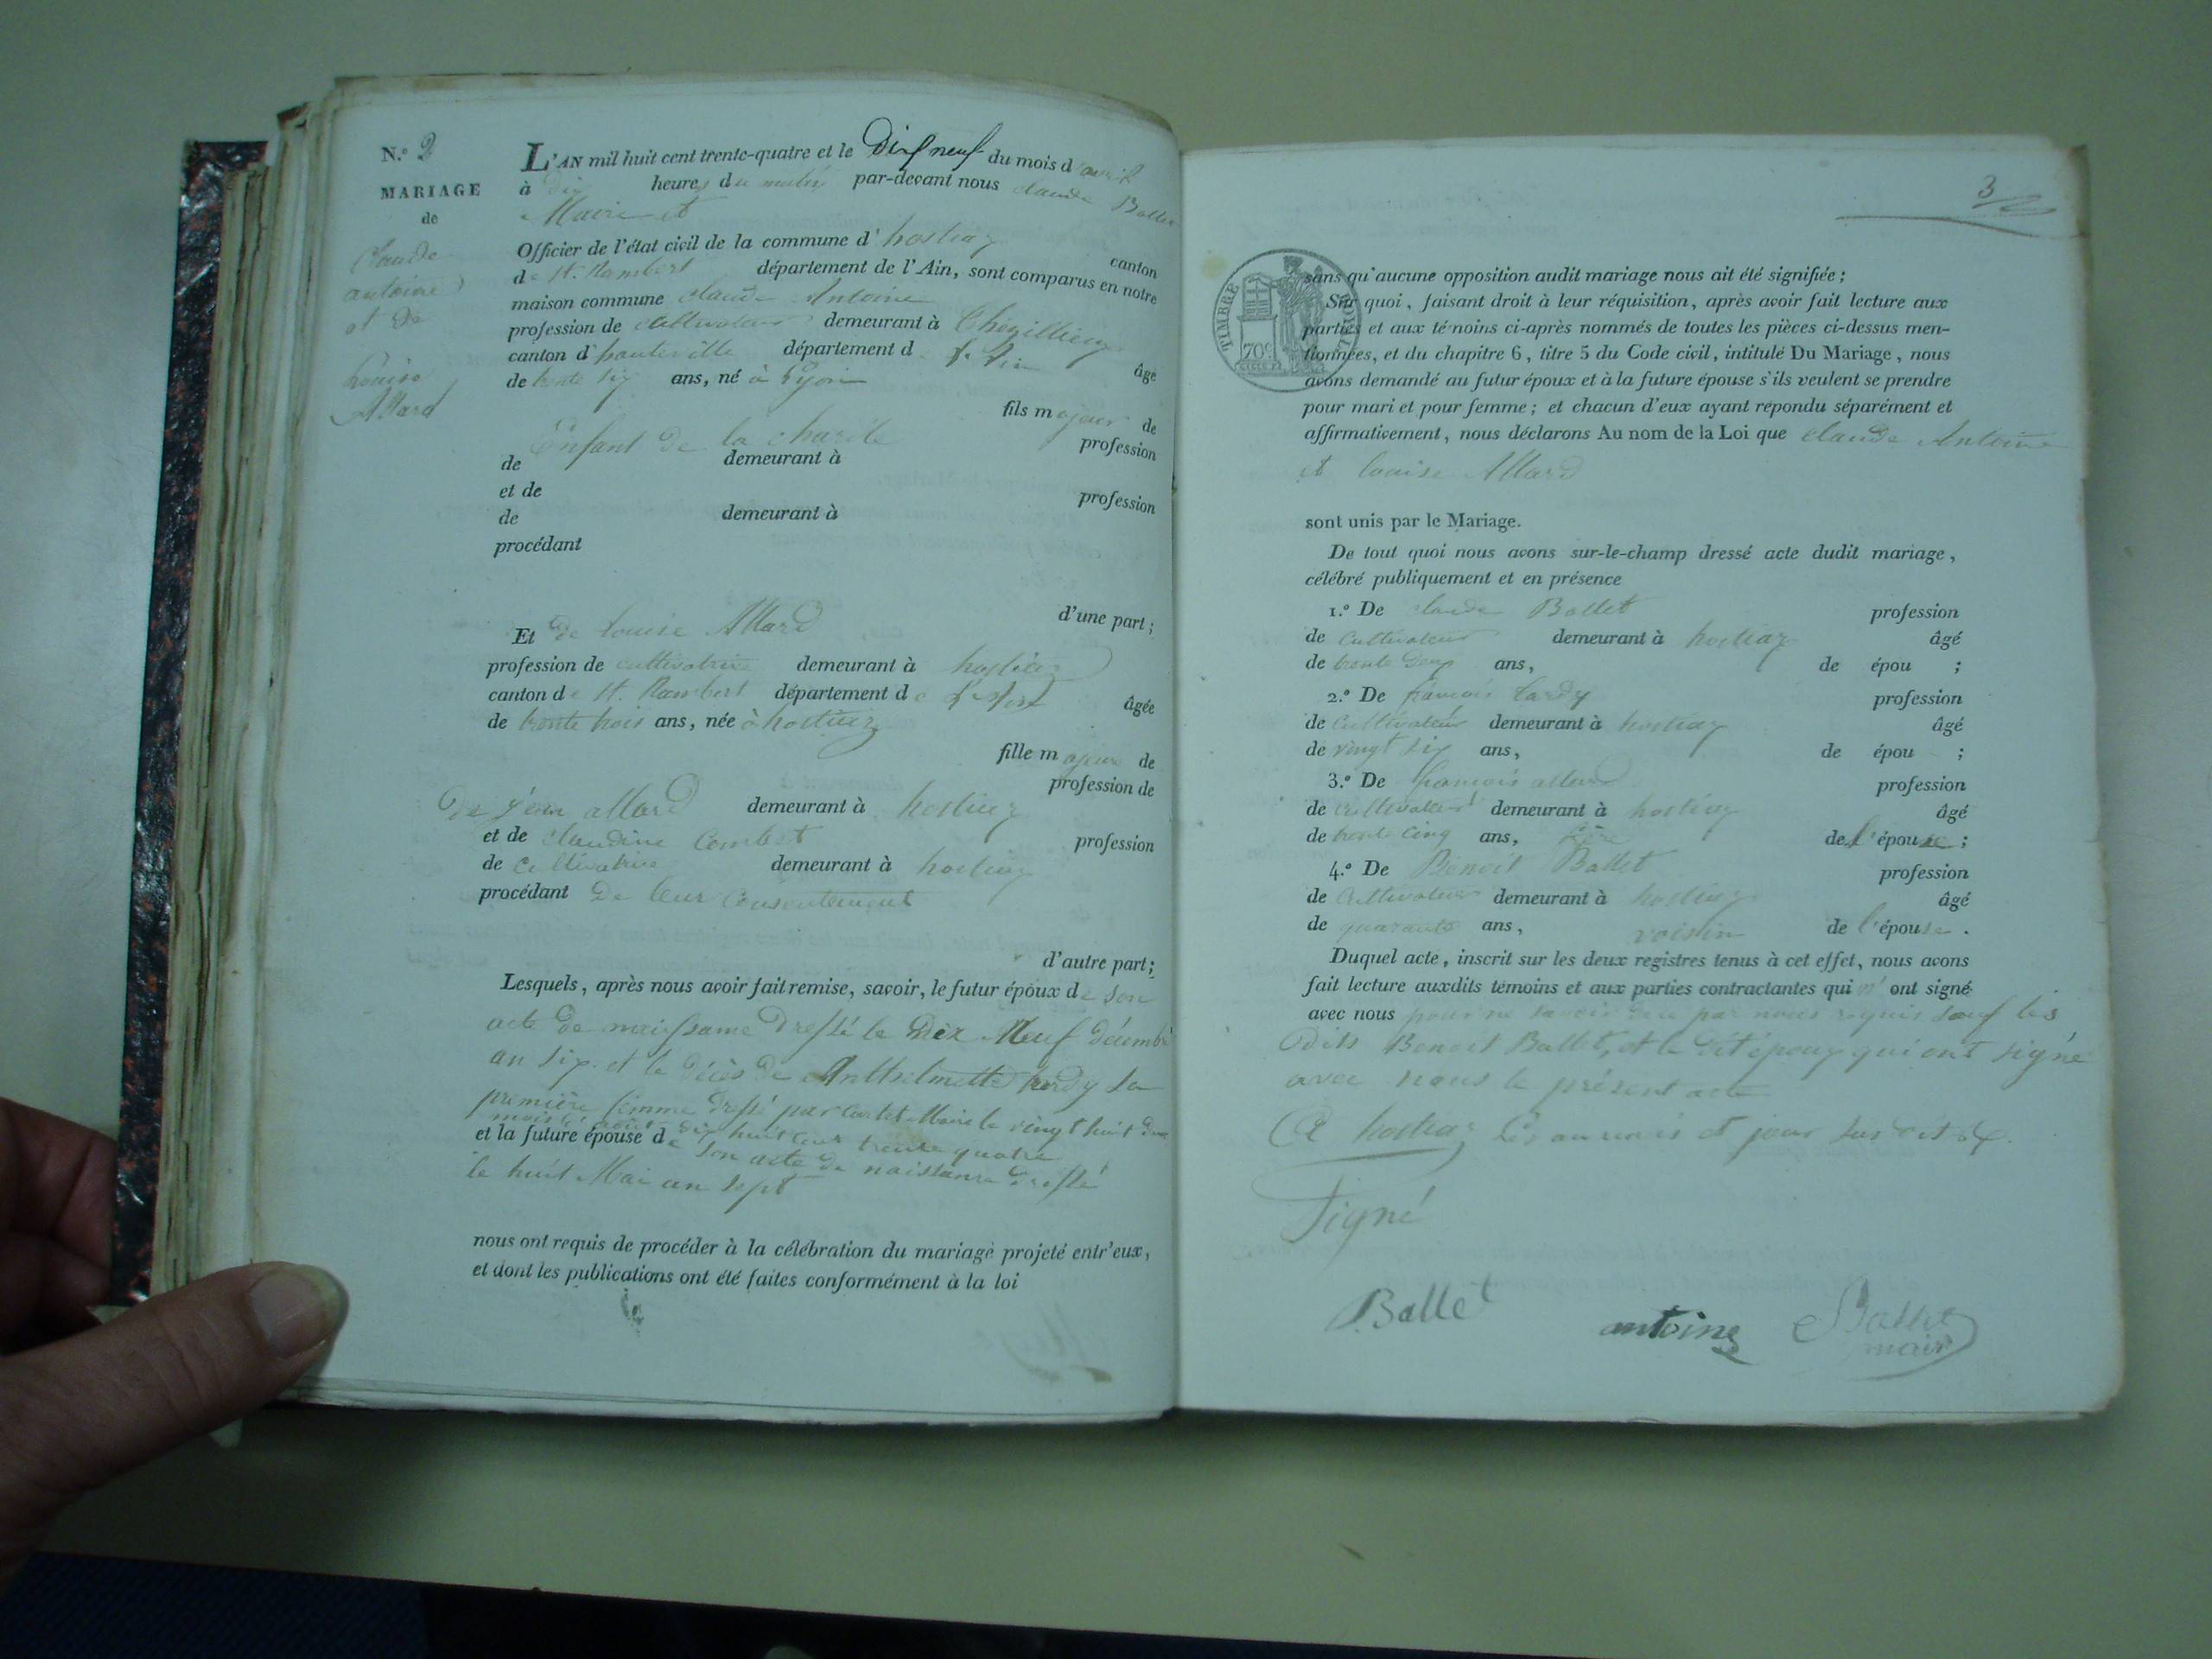 N.º 2
MARIAGE
de
Claude
antoine
et de
Louise
Allard
L'AN mil huit cent trente-quatre et le Dix neuf du mois d'avril
à dix heures du matin par-devant nous claude Ballet
Maire et
Officier de l'état civil de la commune d'hostiaz canton
de St. Rambert département de l'Ain, sont comparus en notre
maison commune claude Antoine
profession de cultivateur demeurant à
canton d'hauteville département de l'Ain âgé
de trente six ans, né à Lyon
fils majeur de
Enfant de la charité profession
de demeurant à
et de profession
de demeurant à
procédant
d'une part;
Et de louise Allard
profession de cultivatrice demeurant à hostiaz
canton de St. Rambert département de l'Ain âgée
de trente trois ans, née à hostiaz
fille majeure de
profession de
De jean allard demeurant à hostiaz
et de claudine Combet profession
de cultivatrice demeurant à hostiaz
procédant De leur consentement
d'autre part;
Lesquels, après nous avoir fait remise, savoir, le futur époux de son
acte de naissance Dressé le Dix Neuf décembre
an six et le décès de Anthelmette tardy sa
première femme dressé par Maire le vingt huit du
mois d' août dix huit cent trente quatre
et la future épouse de son acte de naissance Dressé
le huit Mai an sept
nous ont requis de procéder à la célébration du mariage projeté entr'eux,
et dont les publications ont été faites conformément à la loi
3
TIMBRE ROYAL
70c
sans qu'aucune opposition audit mariage nous ait été signifiée;
Sur quoi, faisant droit à leur réquisition, après avoir fait lecture aux
parties et aux témoins ci-après nommés de toutes les pièces ci-dessus men-
tionnées, et du chapitre 6, titre 5 du Code civil, intitulé Du Mariage, nous
avons demandé au futur époux et à la future épouse s'ils veulent se prendre
pour mari et pour femme; et chacun d'eux ayant répondu séparément et
affirmativement, nous déclarons Au nom de la Loi que claude Antoine
et louise Allard
sont unis par le Mariage.
De tout quoi nous avons sur-le-champ dressé acte dudit mariage,
célébré publiquement et en présence
1.º De claude Ballet profession
de cultivateur demeurant à hostiaz âgé
de trente deux ans, de épou ;
2.º De françois tardy profession
de cultivateur demeurant à hostiaz âgé
de vingt six ans, de épou ;
3.º De françois allard profession
de cultivateur demeurant à hostiaz âgé
de trente cinq ans, frère de l'épouse ;
4.º De Benoit Ballet profession
de cultivateur demeurant à hostiaz âgé
de quarante ans, voisin de l'épouse .
Duquel acte, inscrit sur les deux registres tenus à cet effet, nous avons
fait lecture auxdits témoins et aux parties contractantes qui n'ont signé
avec nous pour ne savoir de ce par nous requis sauf les
Dits Benoit Ballet, et le dit époux qui ont signé
avec nous le présent acte
A hostiaz les an mois et jour sus dit
Signé
Ballet
antoine
Ballet
maire